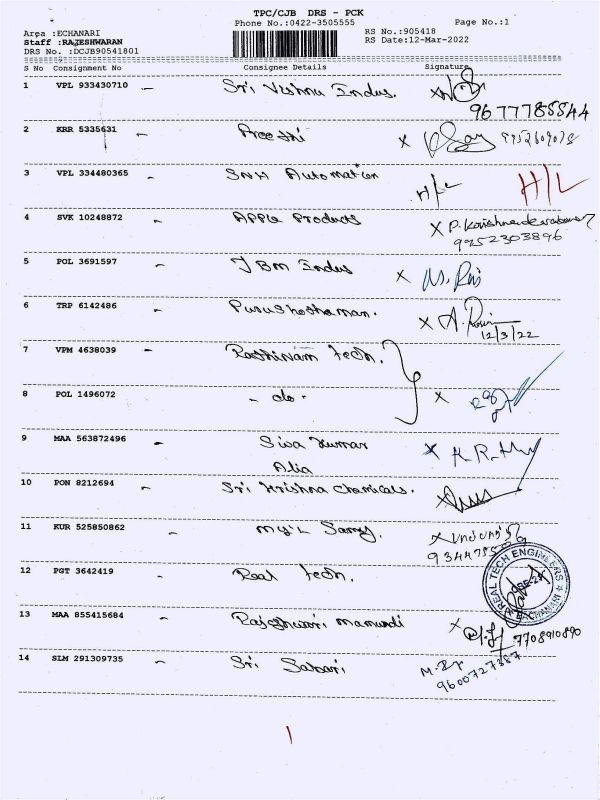 TPC/CJB DRS - PCK
Phone No.:0422-3505555 Page No.:1
Area :ECHANARI RS No.:905418
Staff :RAJESHWARAN RS Date:12-Mar-2022
DRS No. :DCJB90541801
S No Consignment No Consignee Details Signature
1 VPL 933430710 - Sri Vishnu Indus.
9677785544
2 KRR 5335631 - Preethi X
3 VPL 334480365 - SNH Automation H/L H/L
4 SVK 10248872 - Apple Products X
9952303896
5 POL 3691597 - JBM Indus X
6 TRP 6142486 - Purushothaman. X
12/3/22
7 VPM 4638039 - Rathinam Tech.
8 POL 1496072 - do - X
9 MAA 563872496 - Siva Kumar X
Alia
10 PON 8212694 - Sri Krishna Chemicals.
11 KUR 525850862 - Samy. X
12 PGT 3642419 - Real Tech.
REAL TECH ENGINEERS
13 MAA 855415684 - Rajeshwari X
7708910890
14 SLM 291309735 - Sri Sabari
9600727387
1